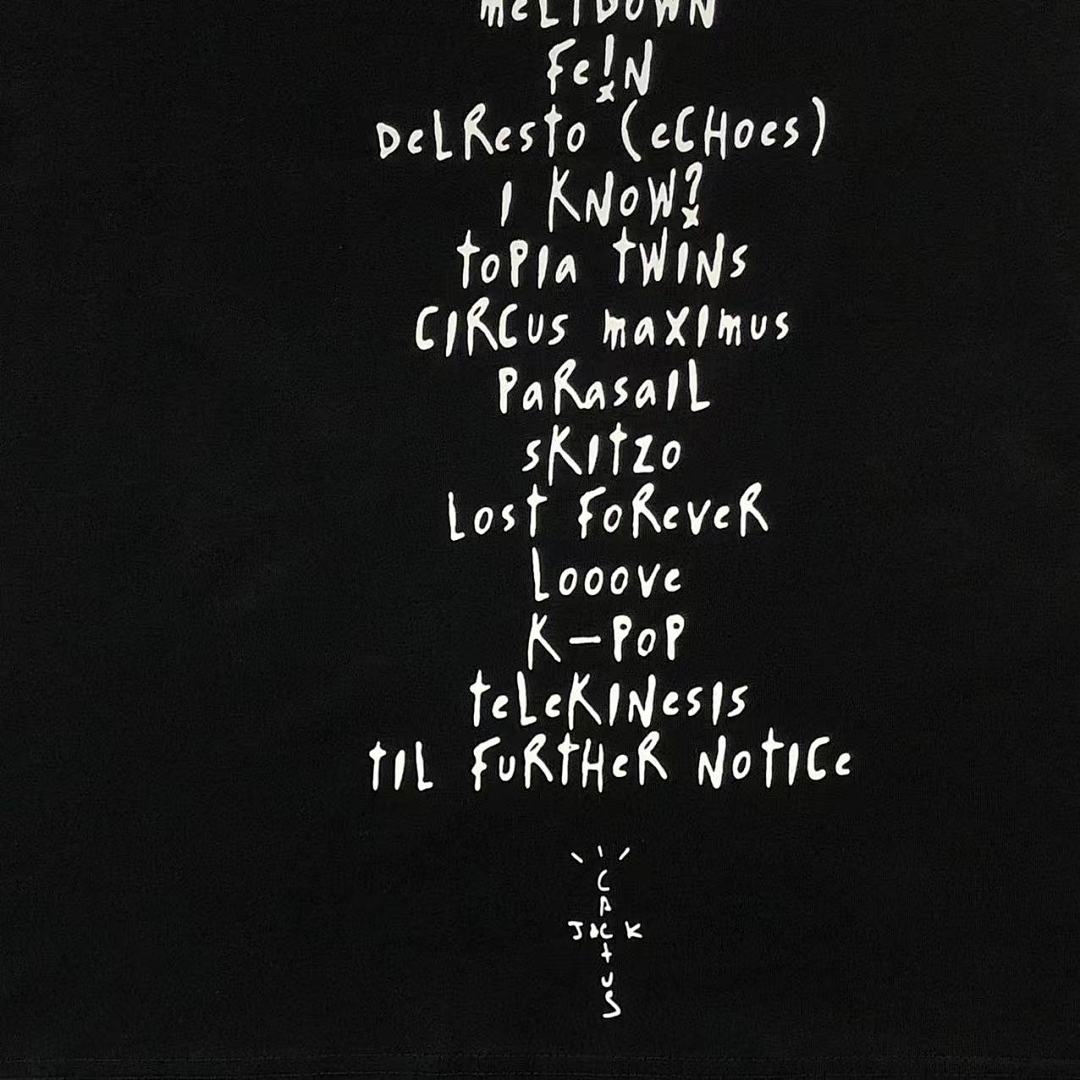 meLTDOWN
Fe!N
DeLResto (eCHoes)
I KNoW?
toPIa tWINs
CIRCus maXImus
PaRasaIL
sKItzo
Lost FoReveR
Looove
K-PoP
teLeKINesIs
tIL FuRtHeR NotICe
CACtUS
JACK